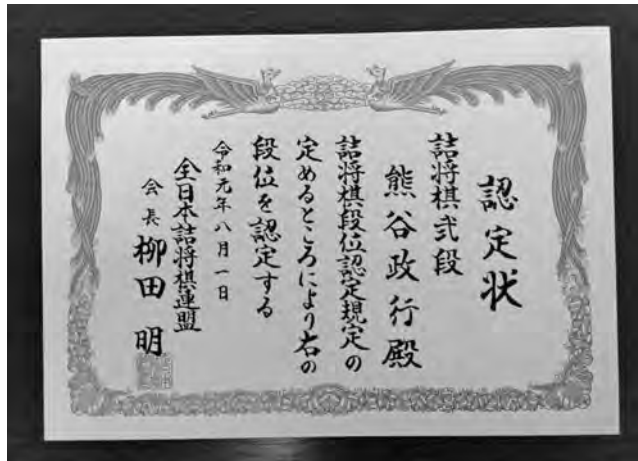 認定状
詰将棋弐段
熊谷政行殿
詰将棋段位認定規定の
定めるところにより右の
段位を認定する
令和元年八月一日
全日本詰将棋連盟
会長 柳田明